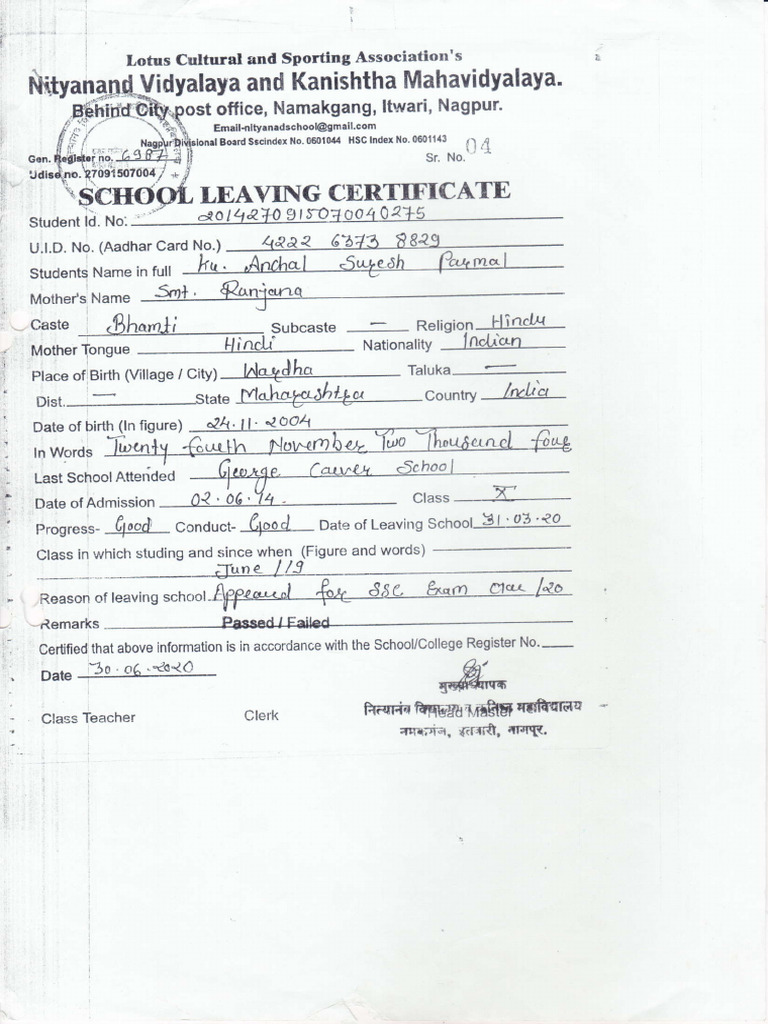 Lotus Cultural and Sporting Association's
Nityanand Vidyalaya and Kanishtha Mahavidyalaya.
Behind City post office, Namakgang, Itwari, Nagpur.
Email-nityanadschool@gmail.com
Nagpur Divisional Board Sscindex No. 0601044 HSC Index No. 0601143
Gen. Register no. 6987 Sr. No. 04
Udise no. 27091507004
SCHOOL LEAVING CERTIFICATE
Student Id. No: 2014270915070040275
U.I.D. No. (Aadhar Card No.) 4222 6373 8829
Students Name in full Ku. Anchal Suresh Parmal
Mother's Name Smt. Ranjana
Caste Bhamti Subcaste — Religion Hindu
Mother Tongue Hindi Nationality Indian
Place of Birth (Village / City) Wardha Taluka —
Dist. — State Maharashtra Country India
Date of birth (In figure) 24.11.2004
In Words Twenty fourth November Two Thousand four
Last School Attended George Carver School
Date of Admission 02.06.14. Class X
Progress- Good Conduct- Good Date of Leaving School 31.03.20
Class in which studing and since when (Figure and words)
June /19
Reason of leaving school Appeared for SSC Exam Mar /20
Remarks Passed / Failed
Certified that above information is in accordance with the School/College Register No.
Date 30.06.2020
मुख्याध्यापक
Class Teacher Clerk Head Master
नित्यानंद विद्यालय व कनिष्ठ महाविद्यालय
नमकगंज, इतवारी, नागपूर.